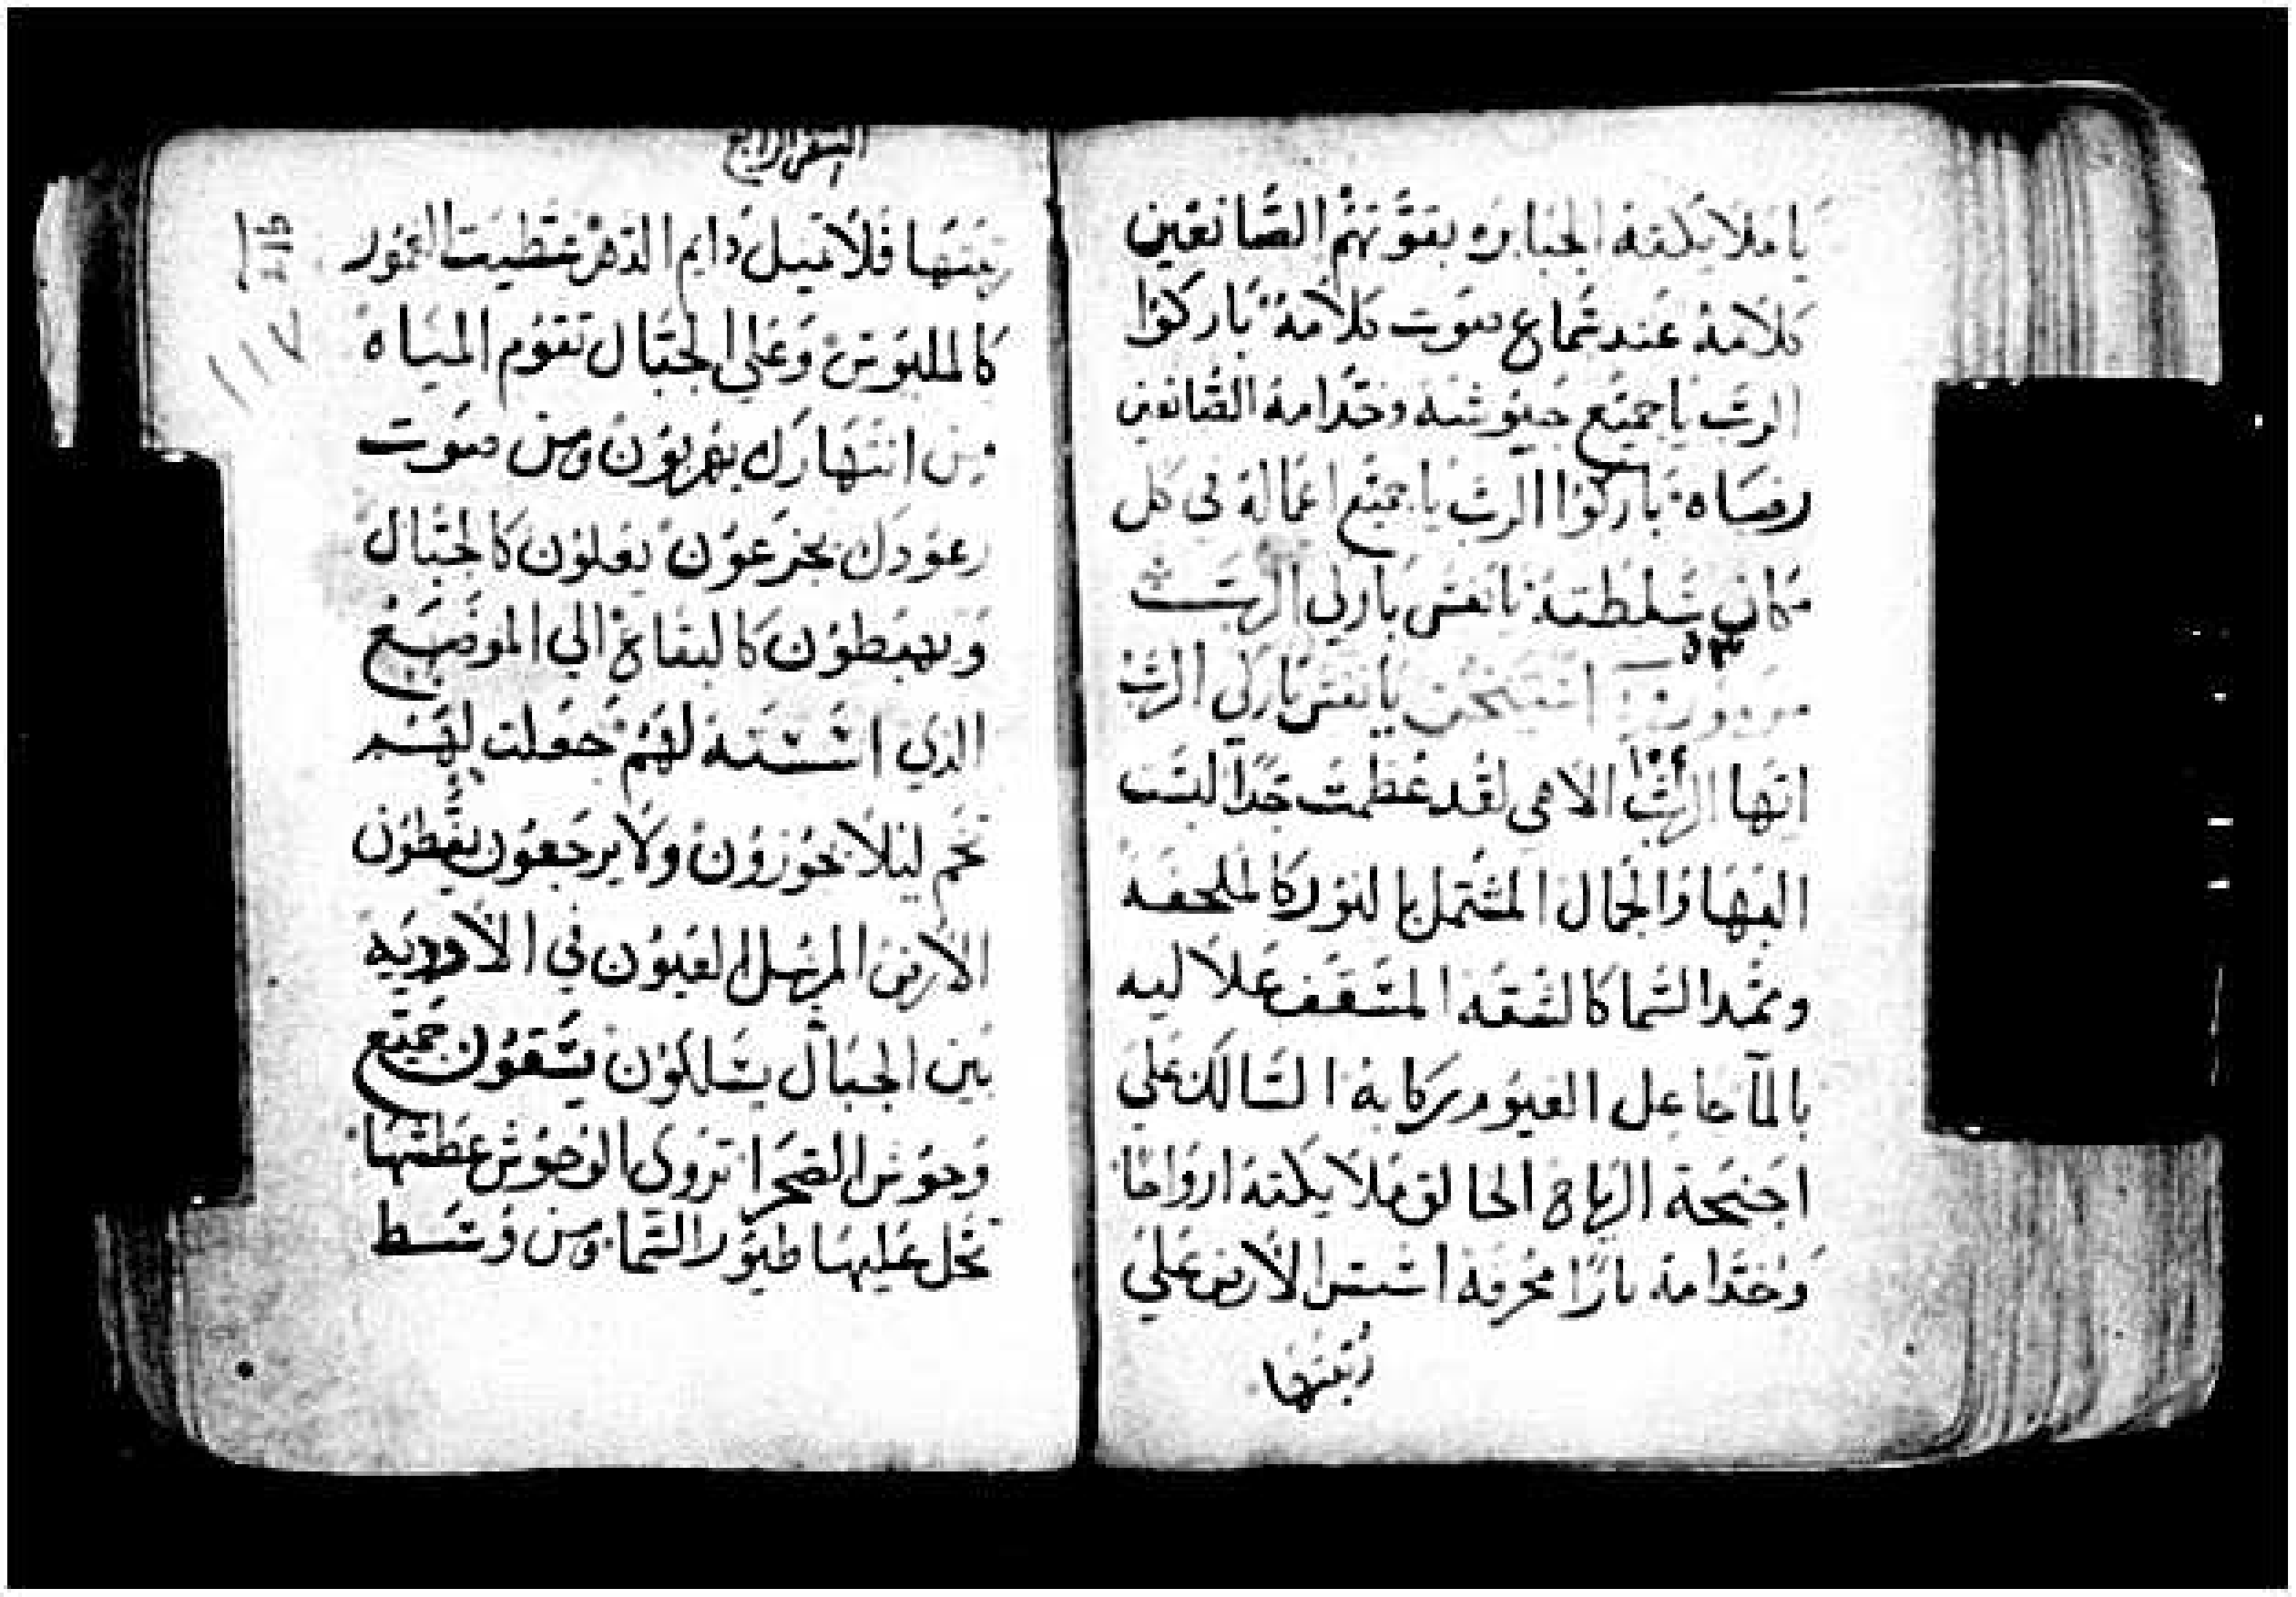 يا ملايكته الجبابرة بقوتهم الصانعين
كلامه عند سماع صوت كلامه باركوا
الرب يا جميع جيوشه وخدامه الصانعين
رضاه باركوا الرب يا جميع اعماله في كل
مكان سلطته يا نفس باركي الرب
مزمور يا نفس باركي الرب
١٠٣
ايها الرب الاهي لقد عظمت جدا لبست
البها والجمال المشتمل بالنور كالملحفه
وتمد السما كالشقه المسقف علاليه
بالمآ جاعل الغيوم ركابه السالك علي
اجنحة الرياح الخالق ملايكته ارواحا
وخدامه نارا محرقه اسس الارض علي
زينتها
زينتها فلا تميل دايم الدهر غطيت الغمور
كالملبوس وعلي الجبال تقوم المياه
من انتهارك يهربون ومن صوت
رعودك يجزعون يعلون كالجبال
ويهبطون كالبقاع الي الموضع
الذي اسسته لهم جعلت لهم
تخم ليلا يجوزون ولا يرجعون يغطون
الارض المرسل العيون في الاوديه
بين الجبال يسلكون يسقون جميع
وحوش الصحرا تروي الوحوش عطشها
تحل عليها طيور السما ومن وسط
١١٧